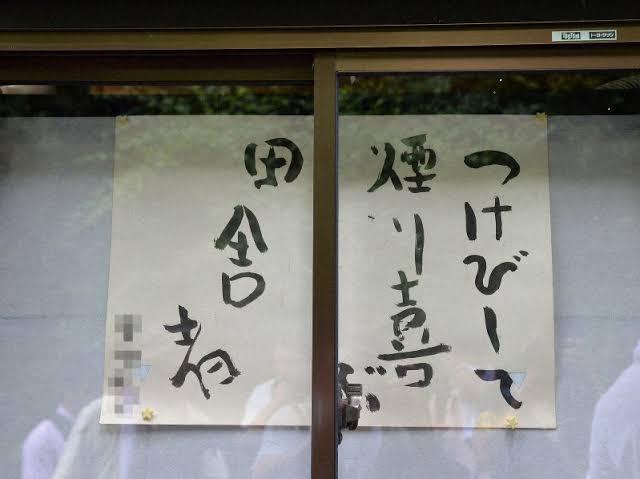 つけびして
煙り喜ぶ
田舎者
トーヨーサッシ